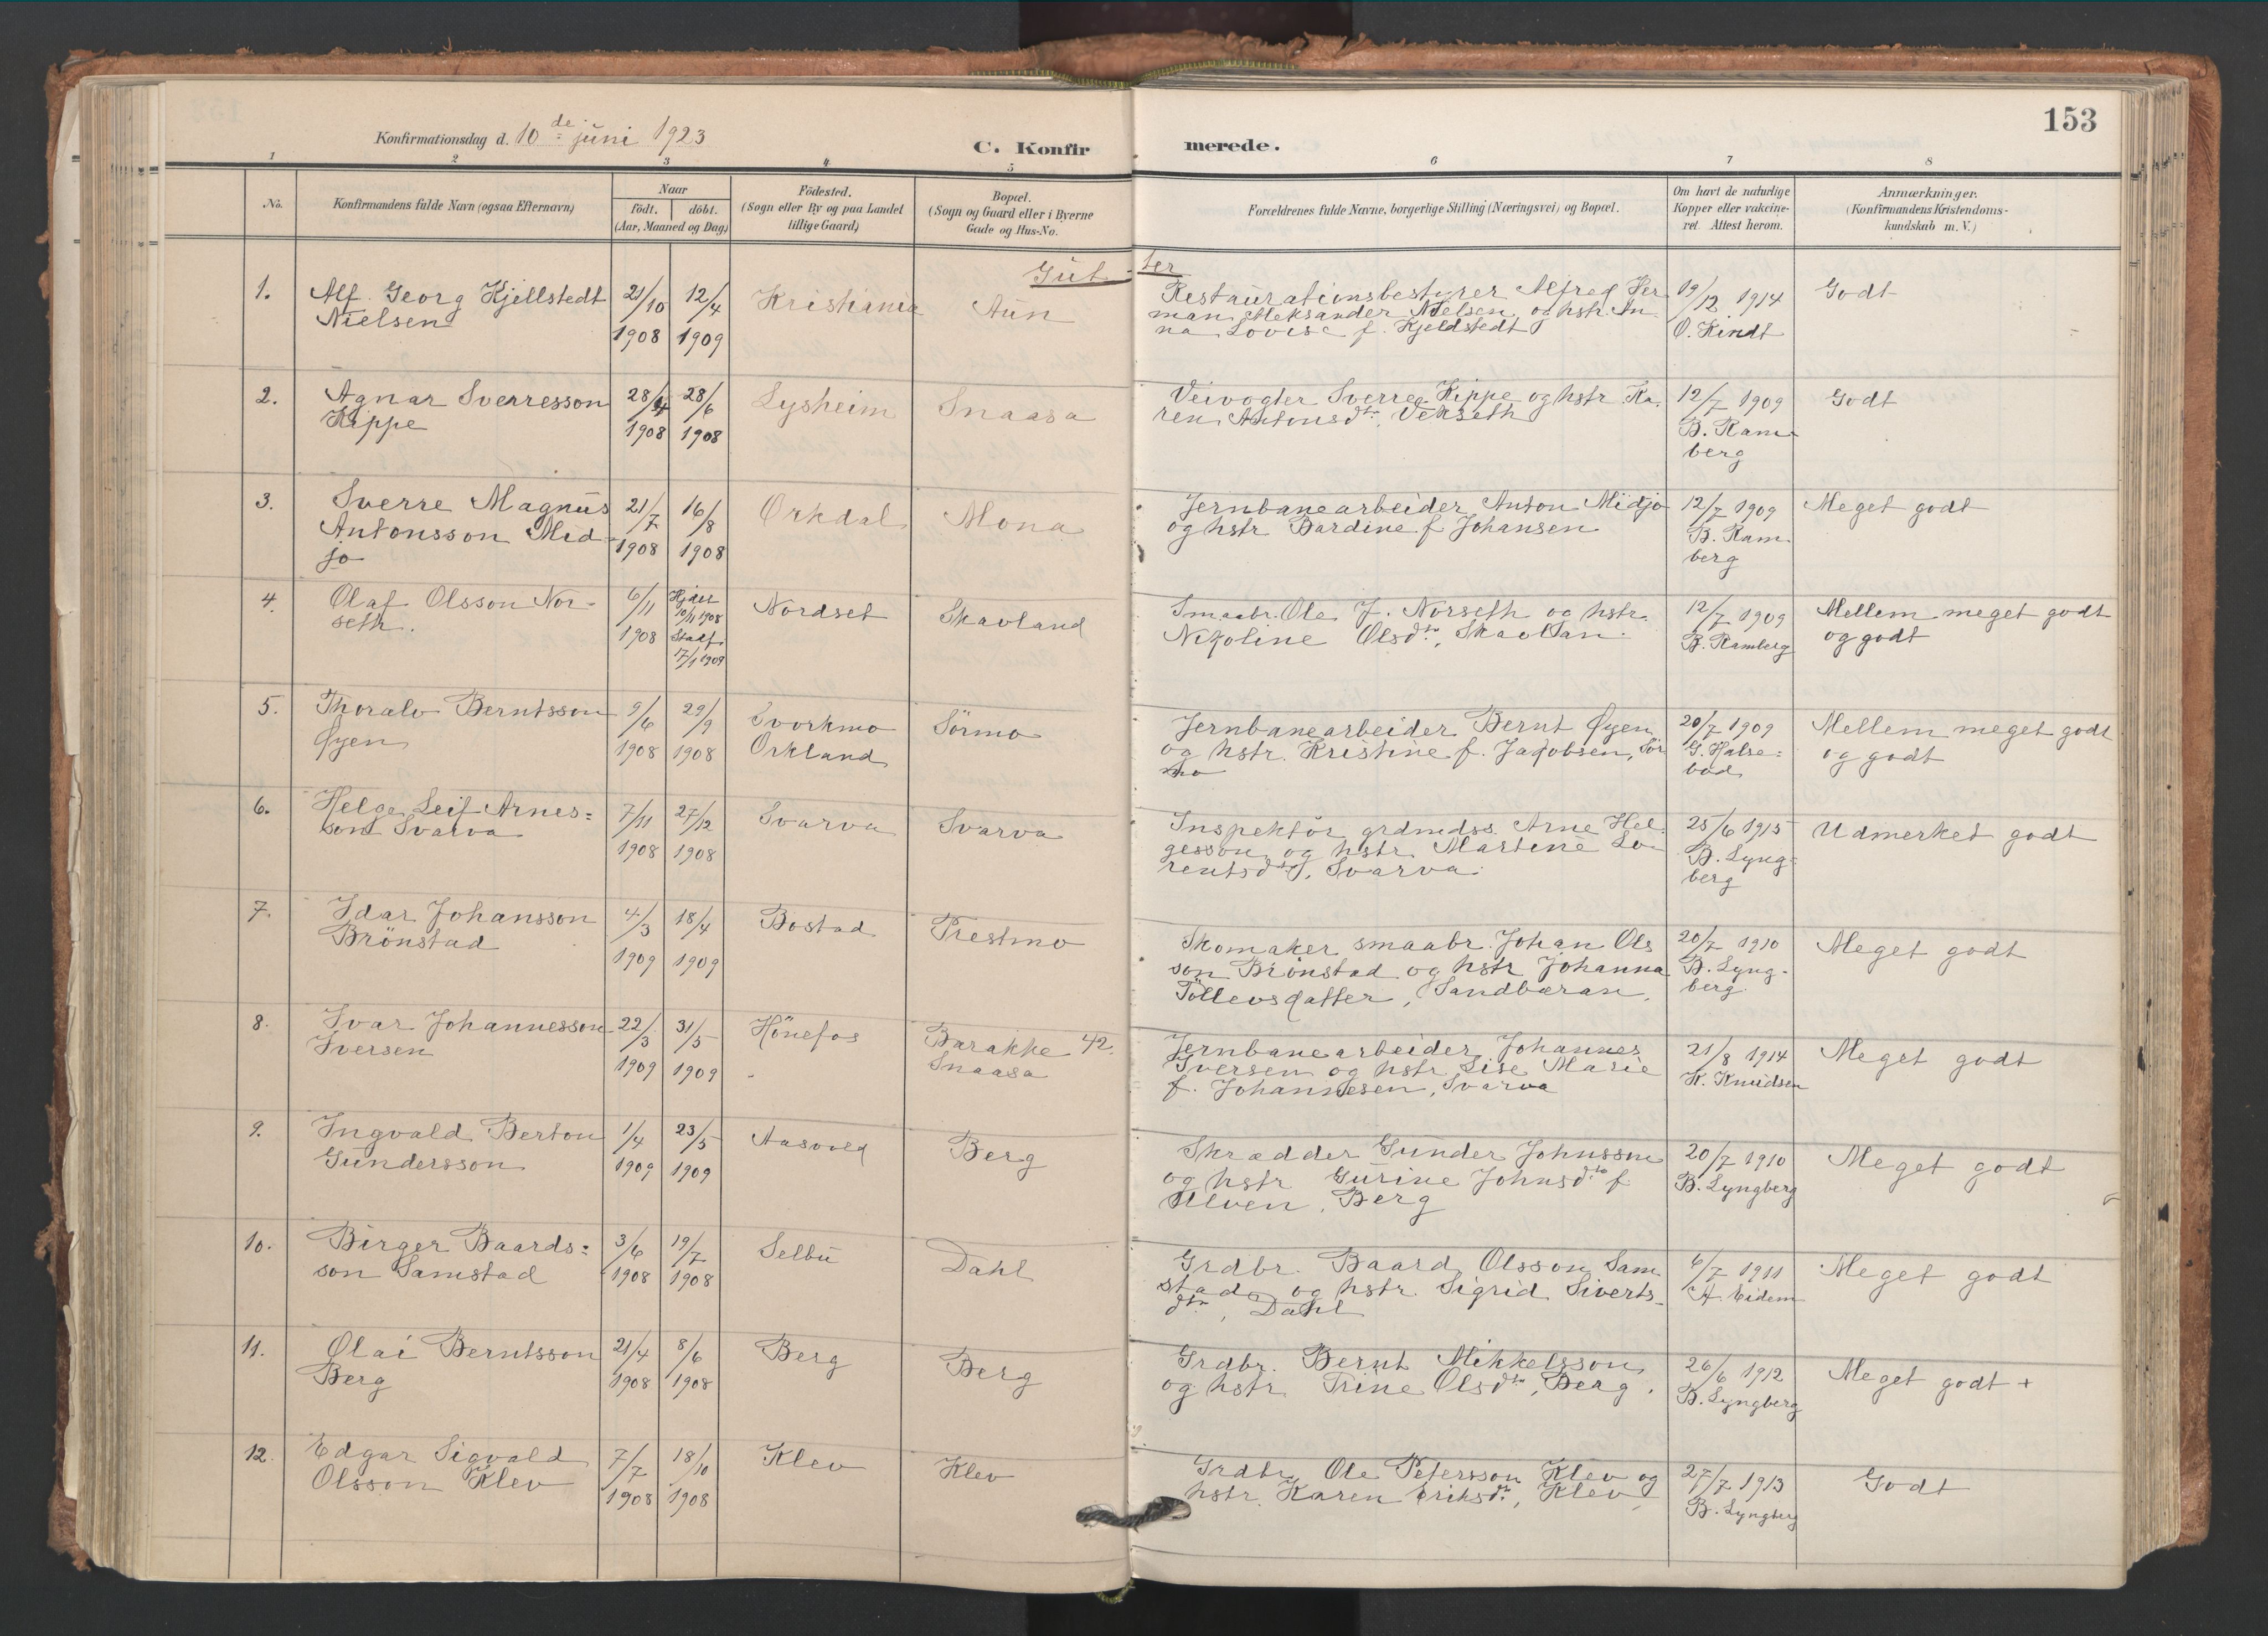 153
Konfirmationsdag d. 10de juni 1923
C. Konfirmerede.
1 2 3 4 5 6 7 8
No.
Konfirmandens fulde Navn (ogsaa Efternavn)
Naar
födt. döbt.
(Aar, Maaned og Dag)
Födested.
(Sogn eller By og paa Landet
tillige Gaard)
Bopæl.
(Sogn og Gaard eller i Byerne
Gade og Hus-No.
Forældrenes fulde Navne, borgerlige Stilling (Næringsvei) og Bopæl.
Om havt de naturlige
Kopper eller vakcine-
ret. Attest herom.
Anmærkninger.
(Konfirmandens Kristendoms-
kundskab m. V.)
Gut-ter
1. Alf Georg Kjellstedt
Nielsen
21/10 1908
12/4 1909
Kristiania
Aun
Restaurationsbestyrer Alfred Her
man Aleksander Nielsen og hstr. An
na Lovise f. Kjeldstedt
19/12 1914
O. Kindt
Godt
2. Agnar Sverresson
Kippe
28/4 1908
28/6 1908
Lysheim
Snaasa
Veivogter Sverre Kippe og hstr. Ka.
ren Antonsdtr. Vekseth
12/7 1909
B. Ram-
berg
Godt
3. Sverre Magnus
Antonsson Mid-
jo
21/7 1908
16/8 1908
Orkdal
Mona
Jernbanearbeider Anton Midjo
og hstr Bardine f Johansen
12/7 1909
B. Ram.
berg
Meget godt
4. Olaf Olsson Nor-
seth.
6/11 1908
Hjdøt
10/11 1908
Stadf.
17/1 1909
Nordset
Skavland
Smaabr. Ole J. Norseth og hstr.
Nikoline Olsdtr, Skavlan.
12/7 1909
B. Ramberg
Mellem meget godt
og godt
5. Thoralv Berntsson
Øyen
9/6 1908
29/9 1908
Svorkmo
Orkland
Sörmo
Jernbanearbeider Bernt Øyen
og hstr. Kristine f. Jakobsen, Sör
mo
20/7 1909
G. Halse=
bod
Mellem meget godt
og godt
6. Helge Leif Arnes=
son Svarva
7/11 1908
27/12 1908
Svarva
Svarva
Inspektör grdmdss. Arne Hel.
gesson og hstr. Martine Lo-
rentsdtr, Svarva.
25/6 1915
B. Lyng-
berg
Udmerket godt
7. Idar Johansson
Brönstad
4/3 1909
18/4 1909
Bostad
Prestmo
Skomaker smaabr. Johan Ols
son Brönstad og hstr Johanna
Tollevsdatter, Sandbæran.
20/7 1910
B. Lyng-
berg.
Meget godt
8. Ivar Johannesson
Iversen
22/3 1909
31/5 1909
Hönefos
Barakke 42.
Snaasa
Jernbanearbeider Johannes
Iversen og hstr Lise Marie
f. Johannesen, Svarva
21/8 1914
K. Knudsen
Meget godt
9. Ingvald Berton
Gundersson
1/4 1909
23/5 1909
Aasvold
Berg
Skrædder Gunder Johnsson
og hstr Gurine Johnsdtr f.
Ulven, Berg
20/7 1910
B. Lyngberg
Meget godt
10. Birger Baards=
son Samstad
3/6 1908
19/7 1908
Selbu
Dahl
Grdbr. Baard Olsson Sam
stad og hstr. Sigrid Siverts-
dtr, Dahl
6/7 1911
A. Eidem
Meget godt
11. Olai Berntsson
Berg
21/4 1908
8/6 1908
Berg
Berg
Grdbr. Bernt Mikkelsson
og hstr. Trine Olsdtr, Berg.
26/6 1912
B. Lyngberg
Meget godt +
12. Edgar Sigvald
Olsson Klev
7/7 1908
18/10 1908
Klev
Klev
Grdbr. Ole Petersson Klev og
hstr. Karen Eriksdtr, Klev
27/7 1913
B. Lyngberg
Godt